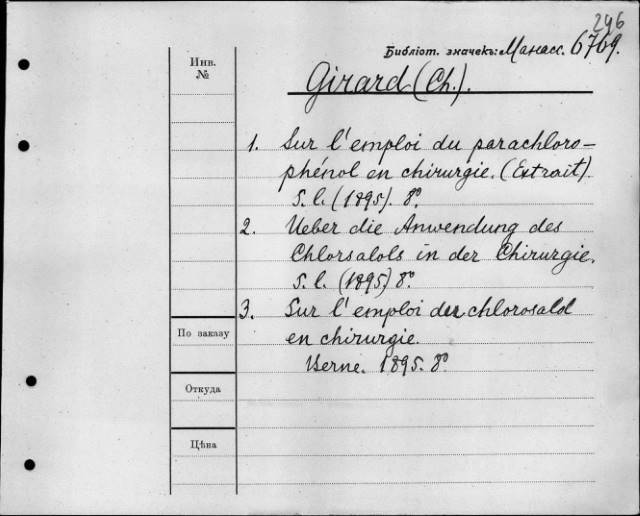 246
Библіот. значекъ: Манасс. 6769.
Инв.
№
Girard (Ch.).
1. Sur l'emploi du parachloro-
phénol en chirurgie. (Extrait).
S. l. (1895). 8°.
2. Ueber die Anwendung des
Chlorsalols in der Chirurgie.
S. l. (1895) 8°.
3. Sur l'emploi du chlorosalol
en chirurgie.
Berne. 1895. 8°
По заказу
Откуда
Цѣна